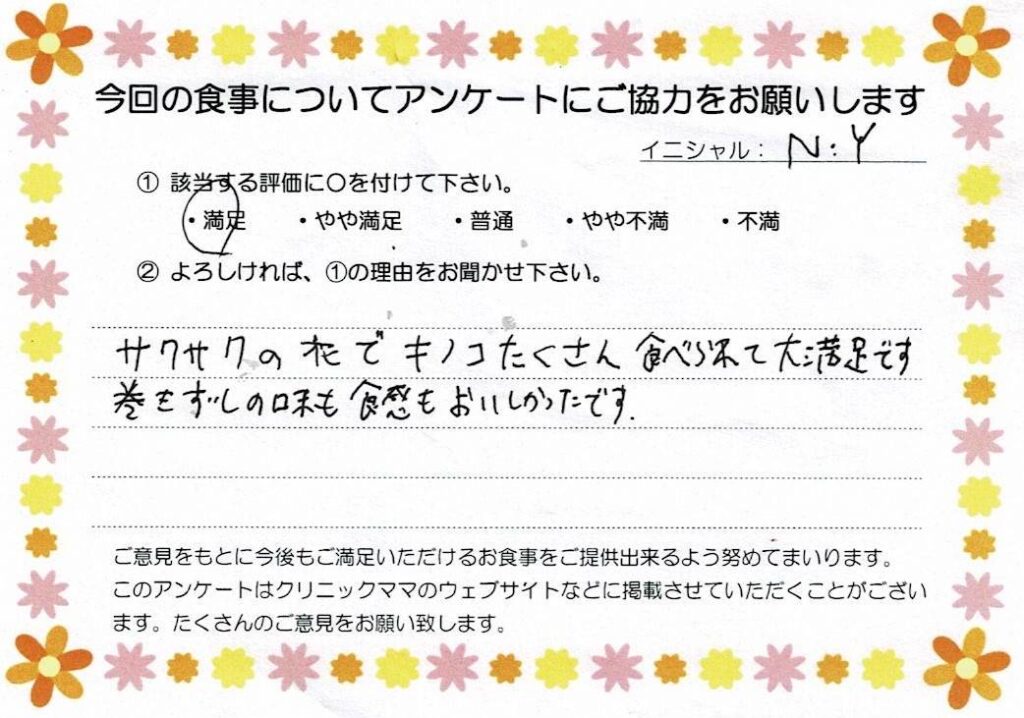 今回の食事についてアンケートにご協力をお願いします
イニシャル： N.Y
① 該当する評価に〇を付けて下さい。
・満足 ・やや満足 ・普通 ・やや不満 ・不満
② よろしければ、①の理由をお聞かせ下さい。
サクサクの で キノコたくさん 食べられて大満足です
巻きずしの味も 食感も おいしかったです.
ご意見をもとに今後もご満足いただけるお食事をご提供出来るよう努めてまいります。
このアンケートはクリニックママのウェブサイトなどに掲載させていただくことがござい
ます。たくさんのご意見をお願い致します。